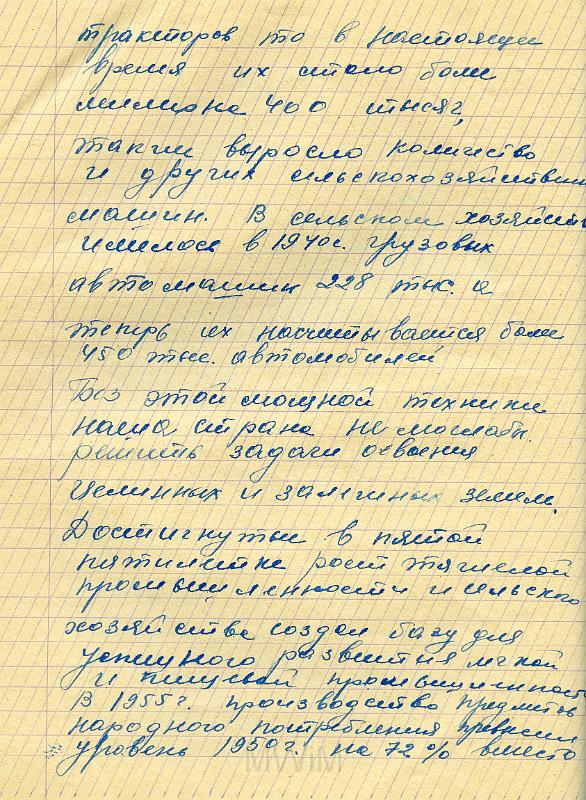 тракторов то в настоящи
время их стало боли
милиона 400 тысяч,
такги выросло количиство
и других сельскохозяйствин
машин. В сельском хозяйств
имилось в 1940г. грузовых
автомашин 228 тыс. а
теперь их насчитываится боли
450 тыс. автомобилей
Биз этой мощной техники
наша страна не моглабы
решить задачи освоения
целинных и залижных земель.
Достигнутый в пятой
пятилитки рост тяжилой
промышлинности и сельского
хозяйства создал базу для
успишного развития легкой
и пищивой промышлинности
В 1955г. производство предмитов
народного потребления привысил
уровень 1950г. на 72% вместо
MVVIM